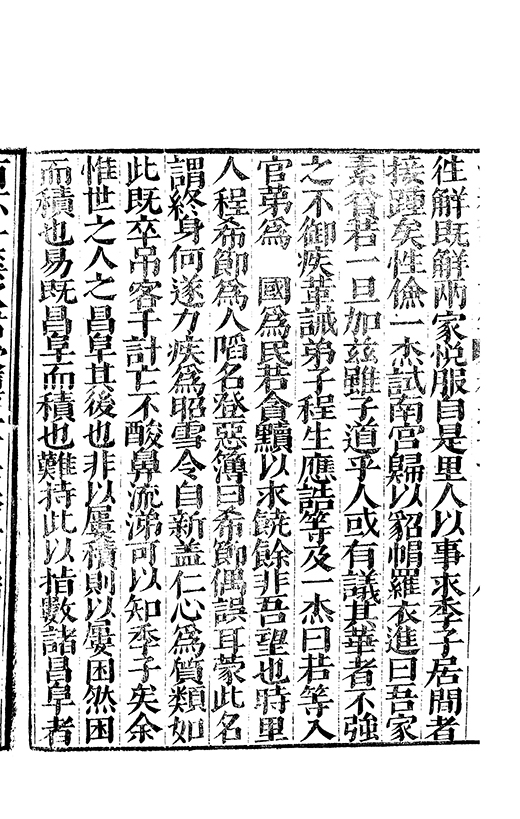 徃解既解兩家悅服自是里人以事求季子居間者
接踵矣性儉一杰試南宮歸以貂帽羅衣進曰吾家
素貧若一旦加兹雖子道乎人或有議其華者不強
之不御疾革誡弟子程生應誥等及一杰曰若等入
官苐為 國為民若貪黷以求饒餘非吾望也時里
人程希節為人䧟名登惡簿曰希節偶誤耳蒙此名
謂終身何遂力疾為昭雪令自新盖仁心為質類如
此既卒吊客千計亡不酸鼻流涕可以知季子矣余
惟世之人之昌阜其後也非以屢積則以屢困然困
而積也易既昌阜而積也難持此以指數諸昌阜者